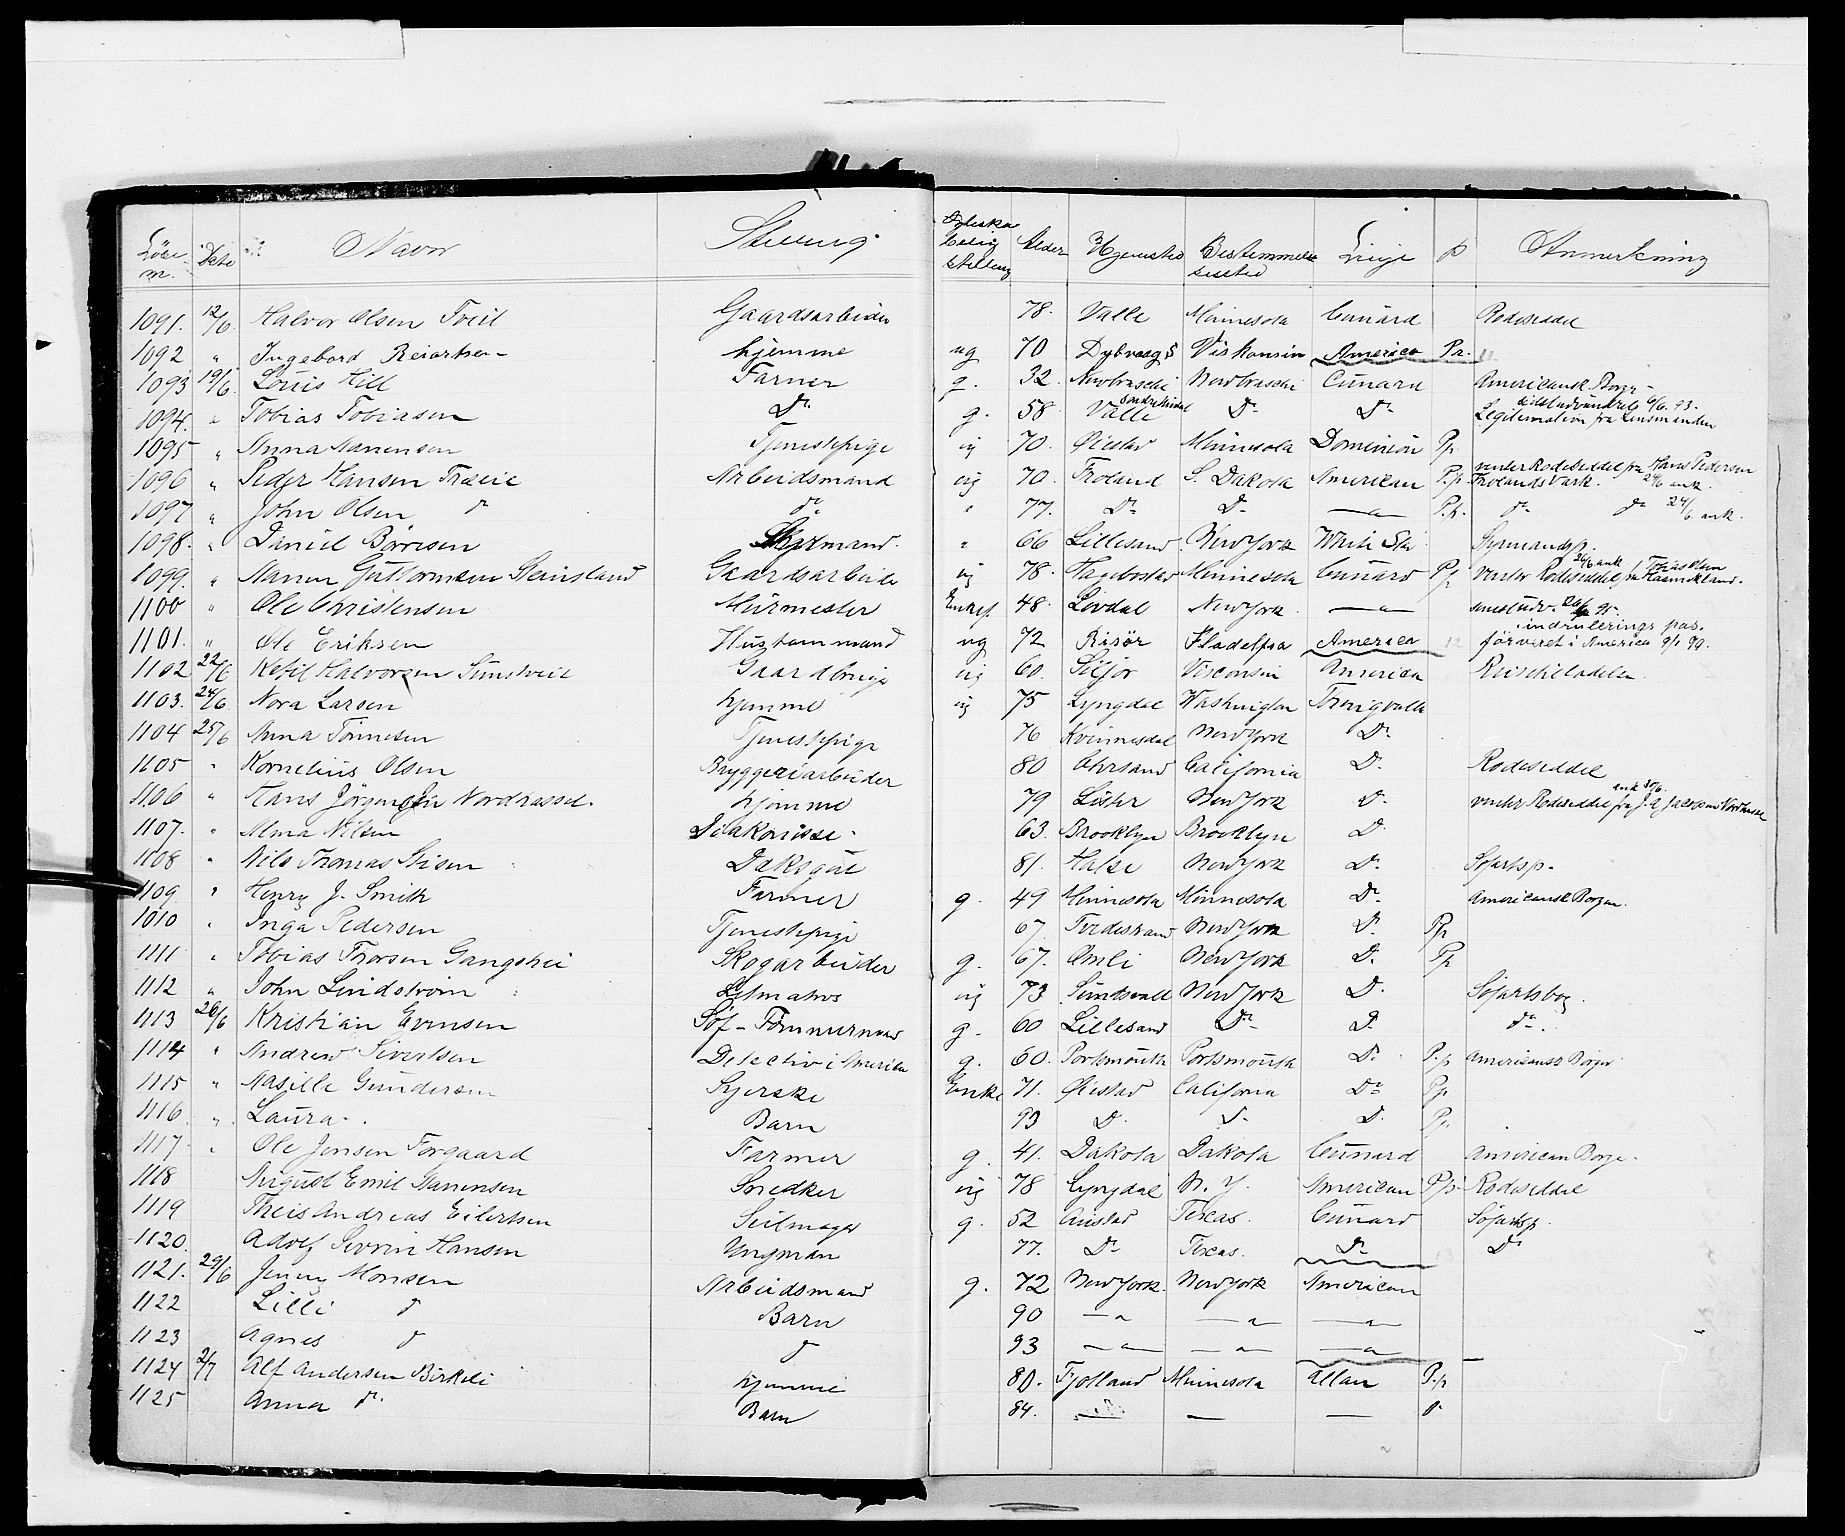 Løbe Dato Navn Stilling Ægteska belig stilling Alder Hjemsted Bestemmelsessted Linje P Anmerkning
1091. 12/6. Halvor Olsen Tveit Gaardsarbeider 78. Valle Minnesota Cunard Rodeseddel
1092 " Ingebord Reiartsen hjemme ug 70 Dybvaag Viskonsin America Pr.
1093 19/6. Louis Hill Farmer g. 32. Newbraschi Newbraschi Cunard Americansk Borger
1094. " Tobias Tobiasen Do g. 58 Valle Do Do sidst udvandrede 6/6. 93. Legitimation fra Lensmanden
1095 " Anna Nanensen Tjenestepige ug 70. Øiestad Minnesota Dominion Pp.
1096 " Peder Hansen Arbeidsmand ug 70. Froland S. Dakota American P.p venter Rodeseddel fra Hans Pedersen Frolands Værk. 24/6 ank.
1097 " John Olsen do do " 77. Do Do — " — P.p. do do 24/6 ank.
1098. " Daniel Børresen Styrmand. " 66 Lillesand New York White Star Syrmandsp.
1099. " Guttormsen Steinsland Gaardsarbeider ug 78. Hægebostad Minnesota Cunard P.p venter Rodeseddel fra
1100 " Ole Christensen Mürmester Enkef. 48. Lovdal New York — " —
1101. " Ole Eriksen Hustømmand ug 72 Risør Fladelfia America indrulerings pas. før været i America
1102 22/6 Ketil Halvorsen Sunstveit Gaardbruger ug 60. Siljor Visconsin America
1103. 24/6. Nora Larsen hjemme ug 75 Lyngdal Washington Thingvalla
1104 25/6 Anna Tønnesen Tjenestepige 76 Kvinnesdal New York Do
1105 " Kornelius Olsen Bryggeriarbeider 80 Chrsand California Do Rodeseddel
1106 " Hans Jørgensen Nordhassel. hjemme 79 Lister New York Do venter Rodeseddel fra
1107. " Alma Nilsen Diakonisse 63. Brooklyn Brooklyn Do
1108 " Nils Thomas Dæksgut 81. Halse New York Do Søfartsp.
1109 " Henry J. Smith Farmer g. 49 Minnesota Minnesota Do Americansk Borger.
1010 " Inga Pedersen Tjenestepige 67. Tvedestrand New York Do Pp.
1111 " Tobias Thorsen Skogarbeider g. 67. Omli New York Do Pp
1112 " John Lindstrøm Letmatros ug 73 Sundsvall New York Do Søfartsbog.
1113 26/6 Kristian Evensen Søf-Tømmermand g. 60 Lillesand Do Do do.
1114 " Andrew Sivertsen Detectiv i America g. 60. Portsmouth Portsmouth Do P.p Americansk Borger
1115 " Gundersen Syerske Enke 71. Øiestad California Do Pp
1116 " Laura Barn 93 Do Do Do Pp.
1117 " Ole Jensen Forgaard Farmer g. 41. Dakota Dakota Cunard American Borger
1118 August Emil Nanensen Snedker ug 78 Lyngdal N. Y. American Pp. Rodeseddel
1119 Theis Andreas Eilertsen Seilmager g. 52 Øiestad Texas. Cunard Søfartsp.
1120. Adolf Sevrin Hansen Ungman 77. Do Texas. Do Do
1121. 29/6 Jenny Monsen Arbeidsmand g. 72 New York. New York American
1122 Lilli do Barn 90 — " — " — " —
1123 Agnes do do 93 — " — " — " —
1124 2/7 Alf Andersen Birkeli hjemme 80. Fjotland Minnesota Allan P.p
1125 Anna do Barn 84. — — — do